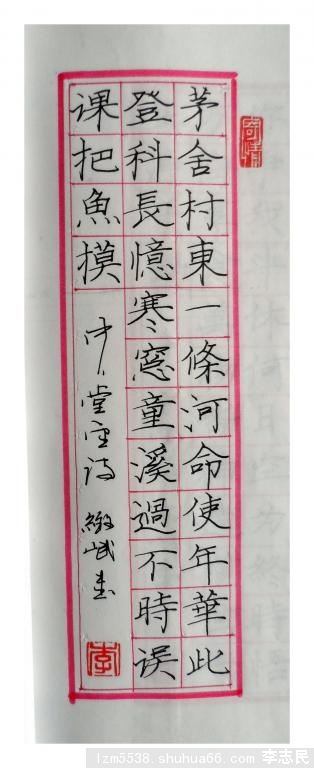 寄情
茅舍村東一條河命使年華此
登科長憶寒窓童溪過不時误
课把魚摸
李
lzm5538.shuhua66.com 李志民